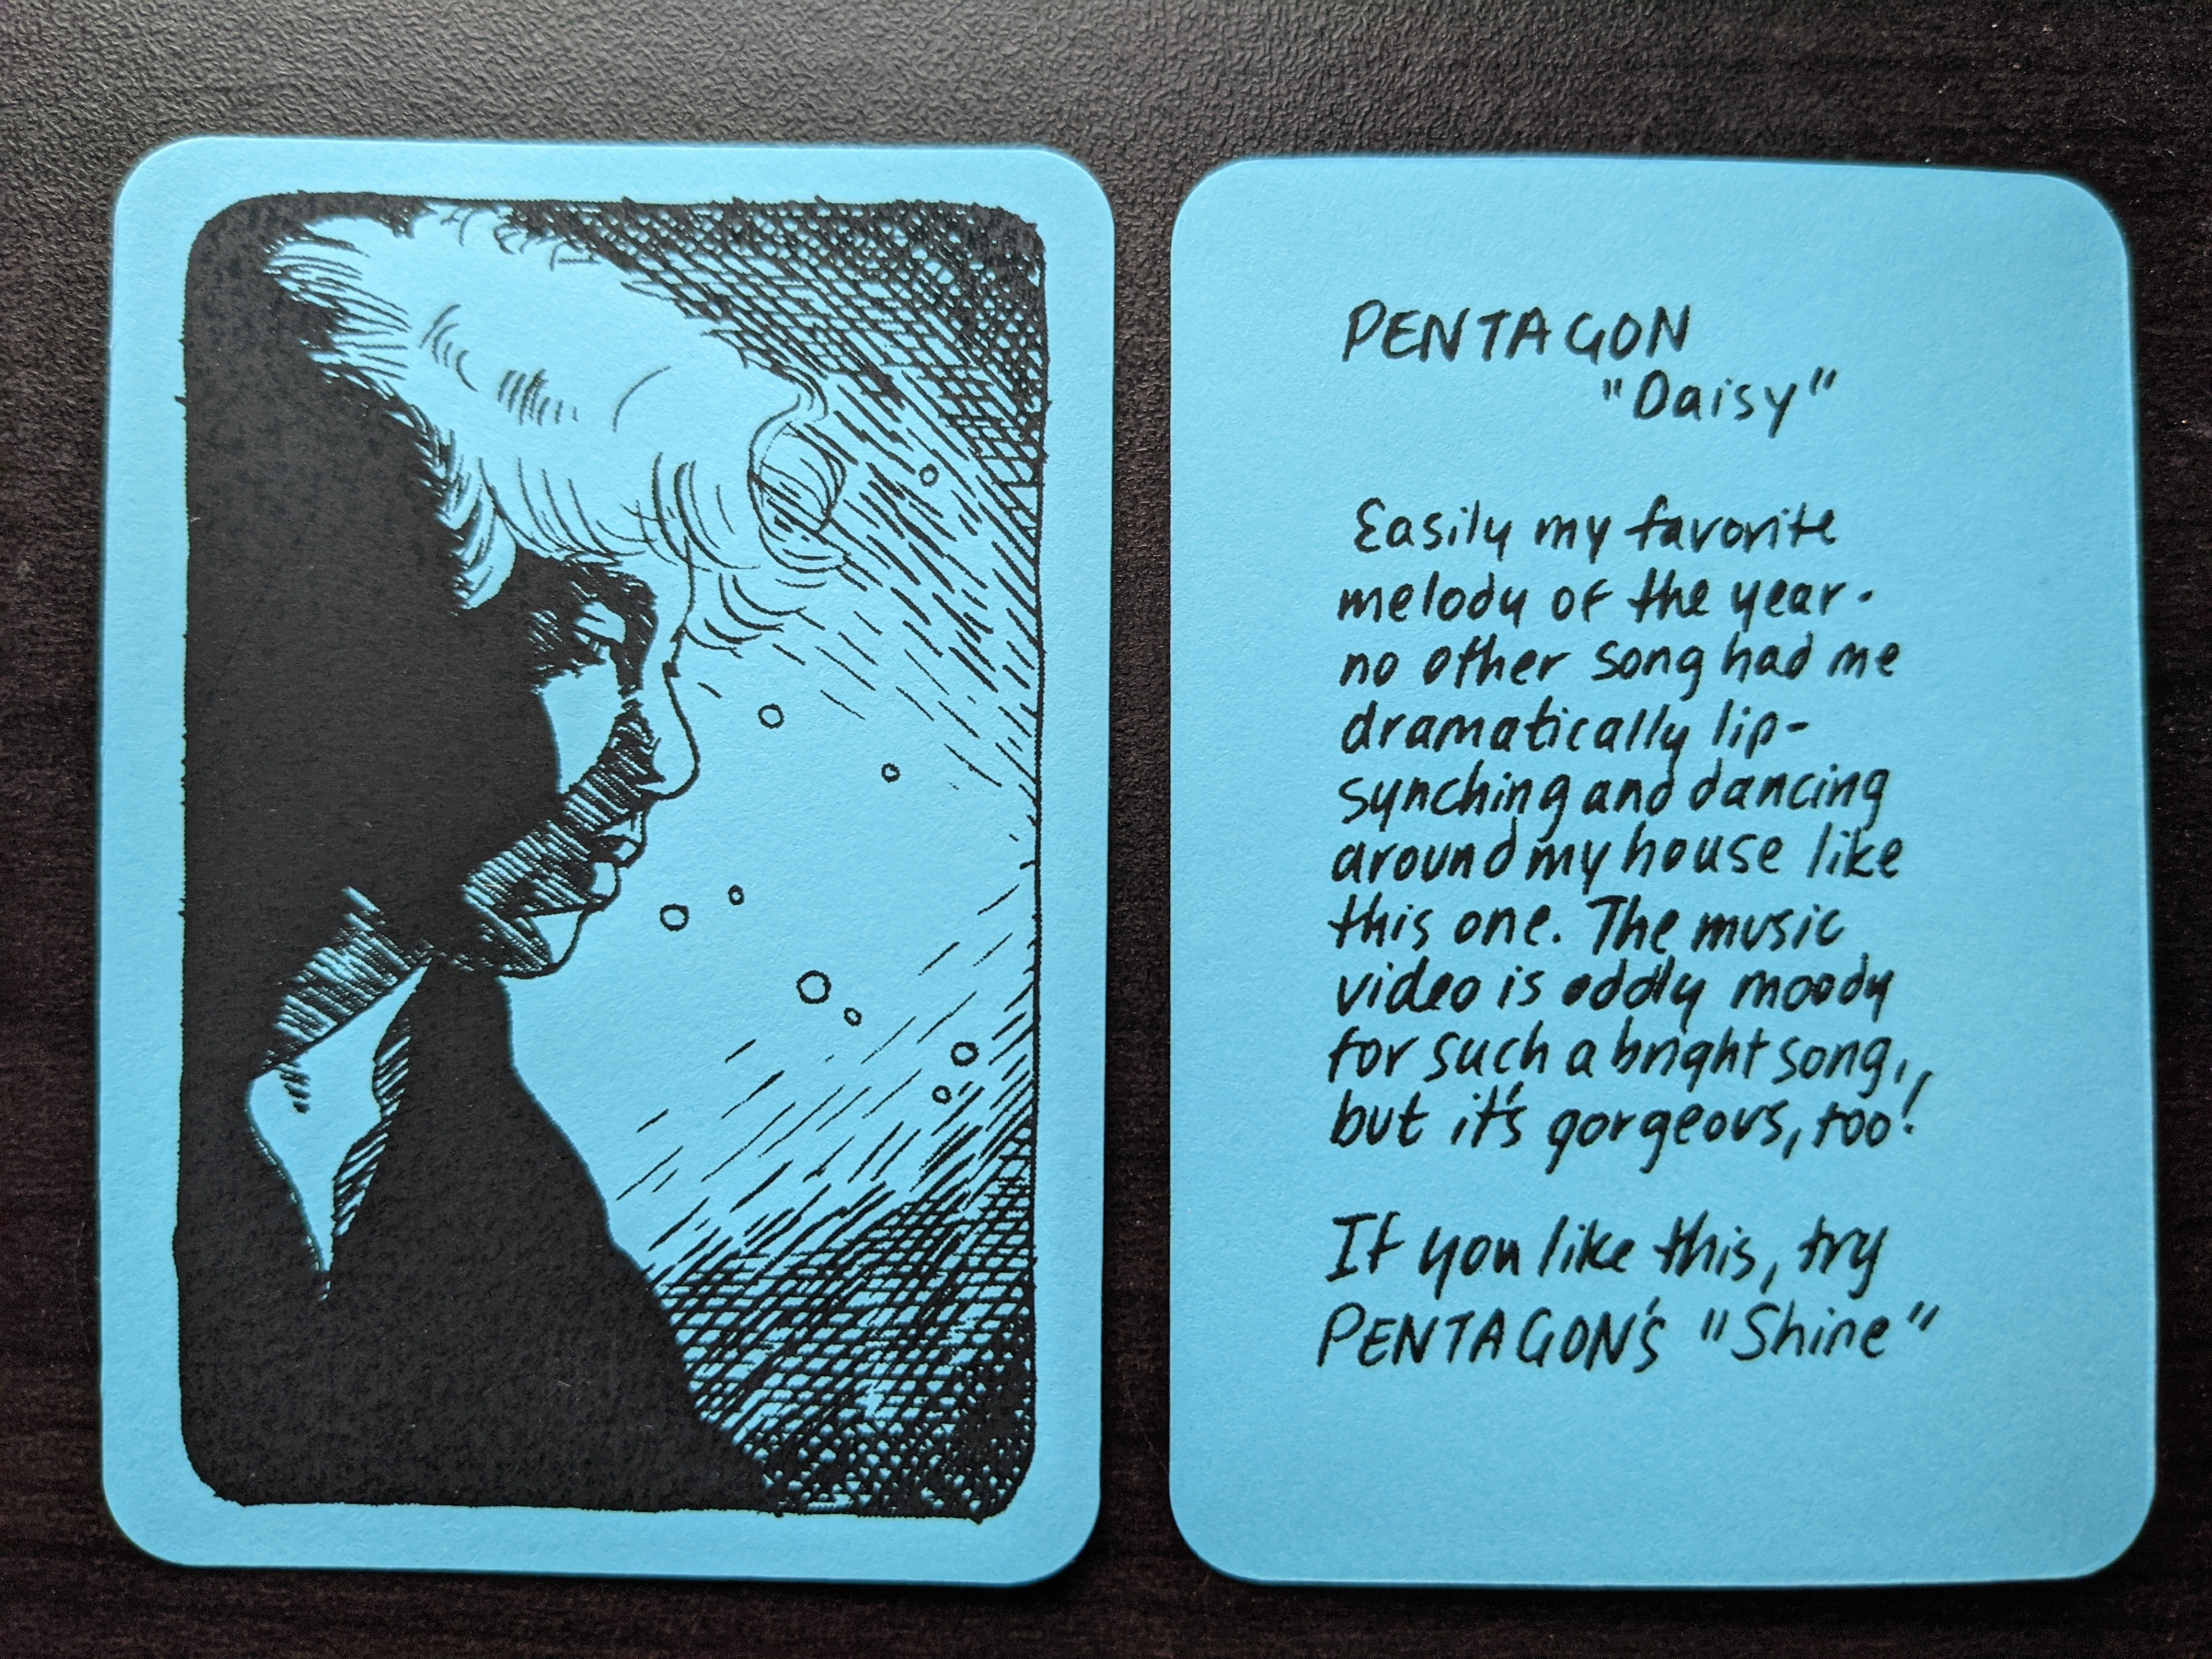 PENTAGON
"Daisy"
Easily my favorite
melody of the year.
no other song had me
dramatically lip-
synching and dancing
around my house like
this one. The music
video is oddly moody
for such a bright song,
but it's gorgeous, too!
If you like this, try
PENTAGON's "Shine"